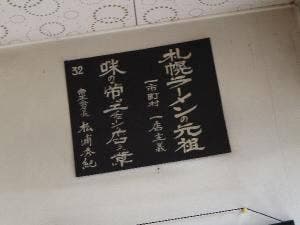 札幌ラーメンの元祖
一市町村 一店主義
味の帝王チェン店之章
32
会長 松浦秀紀